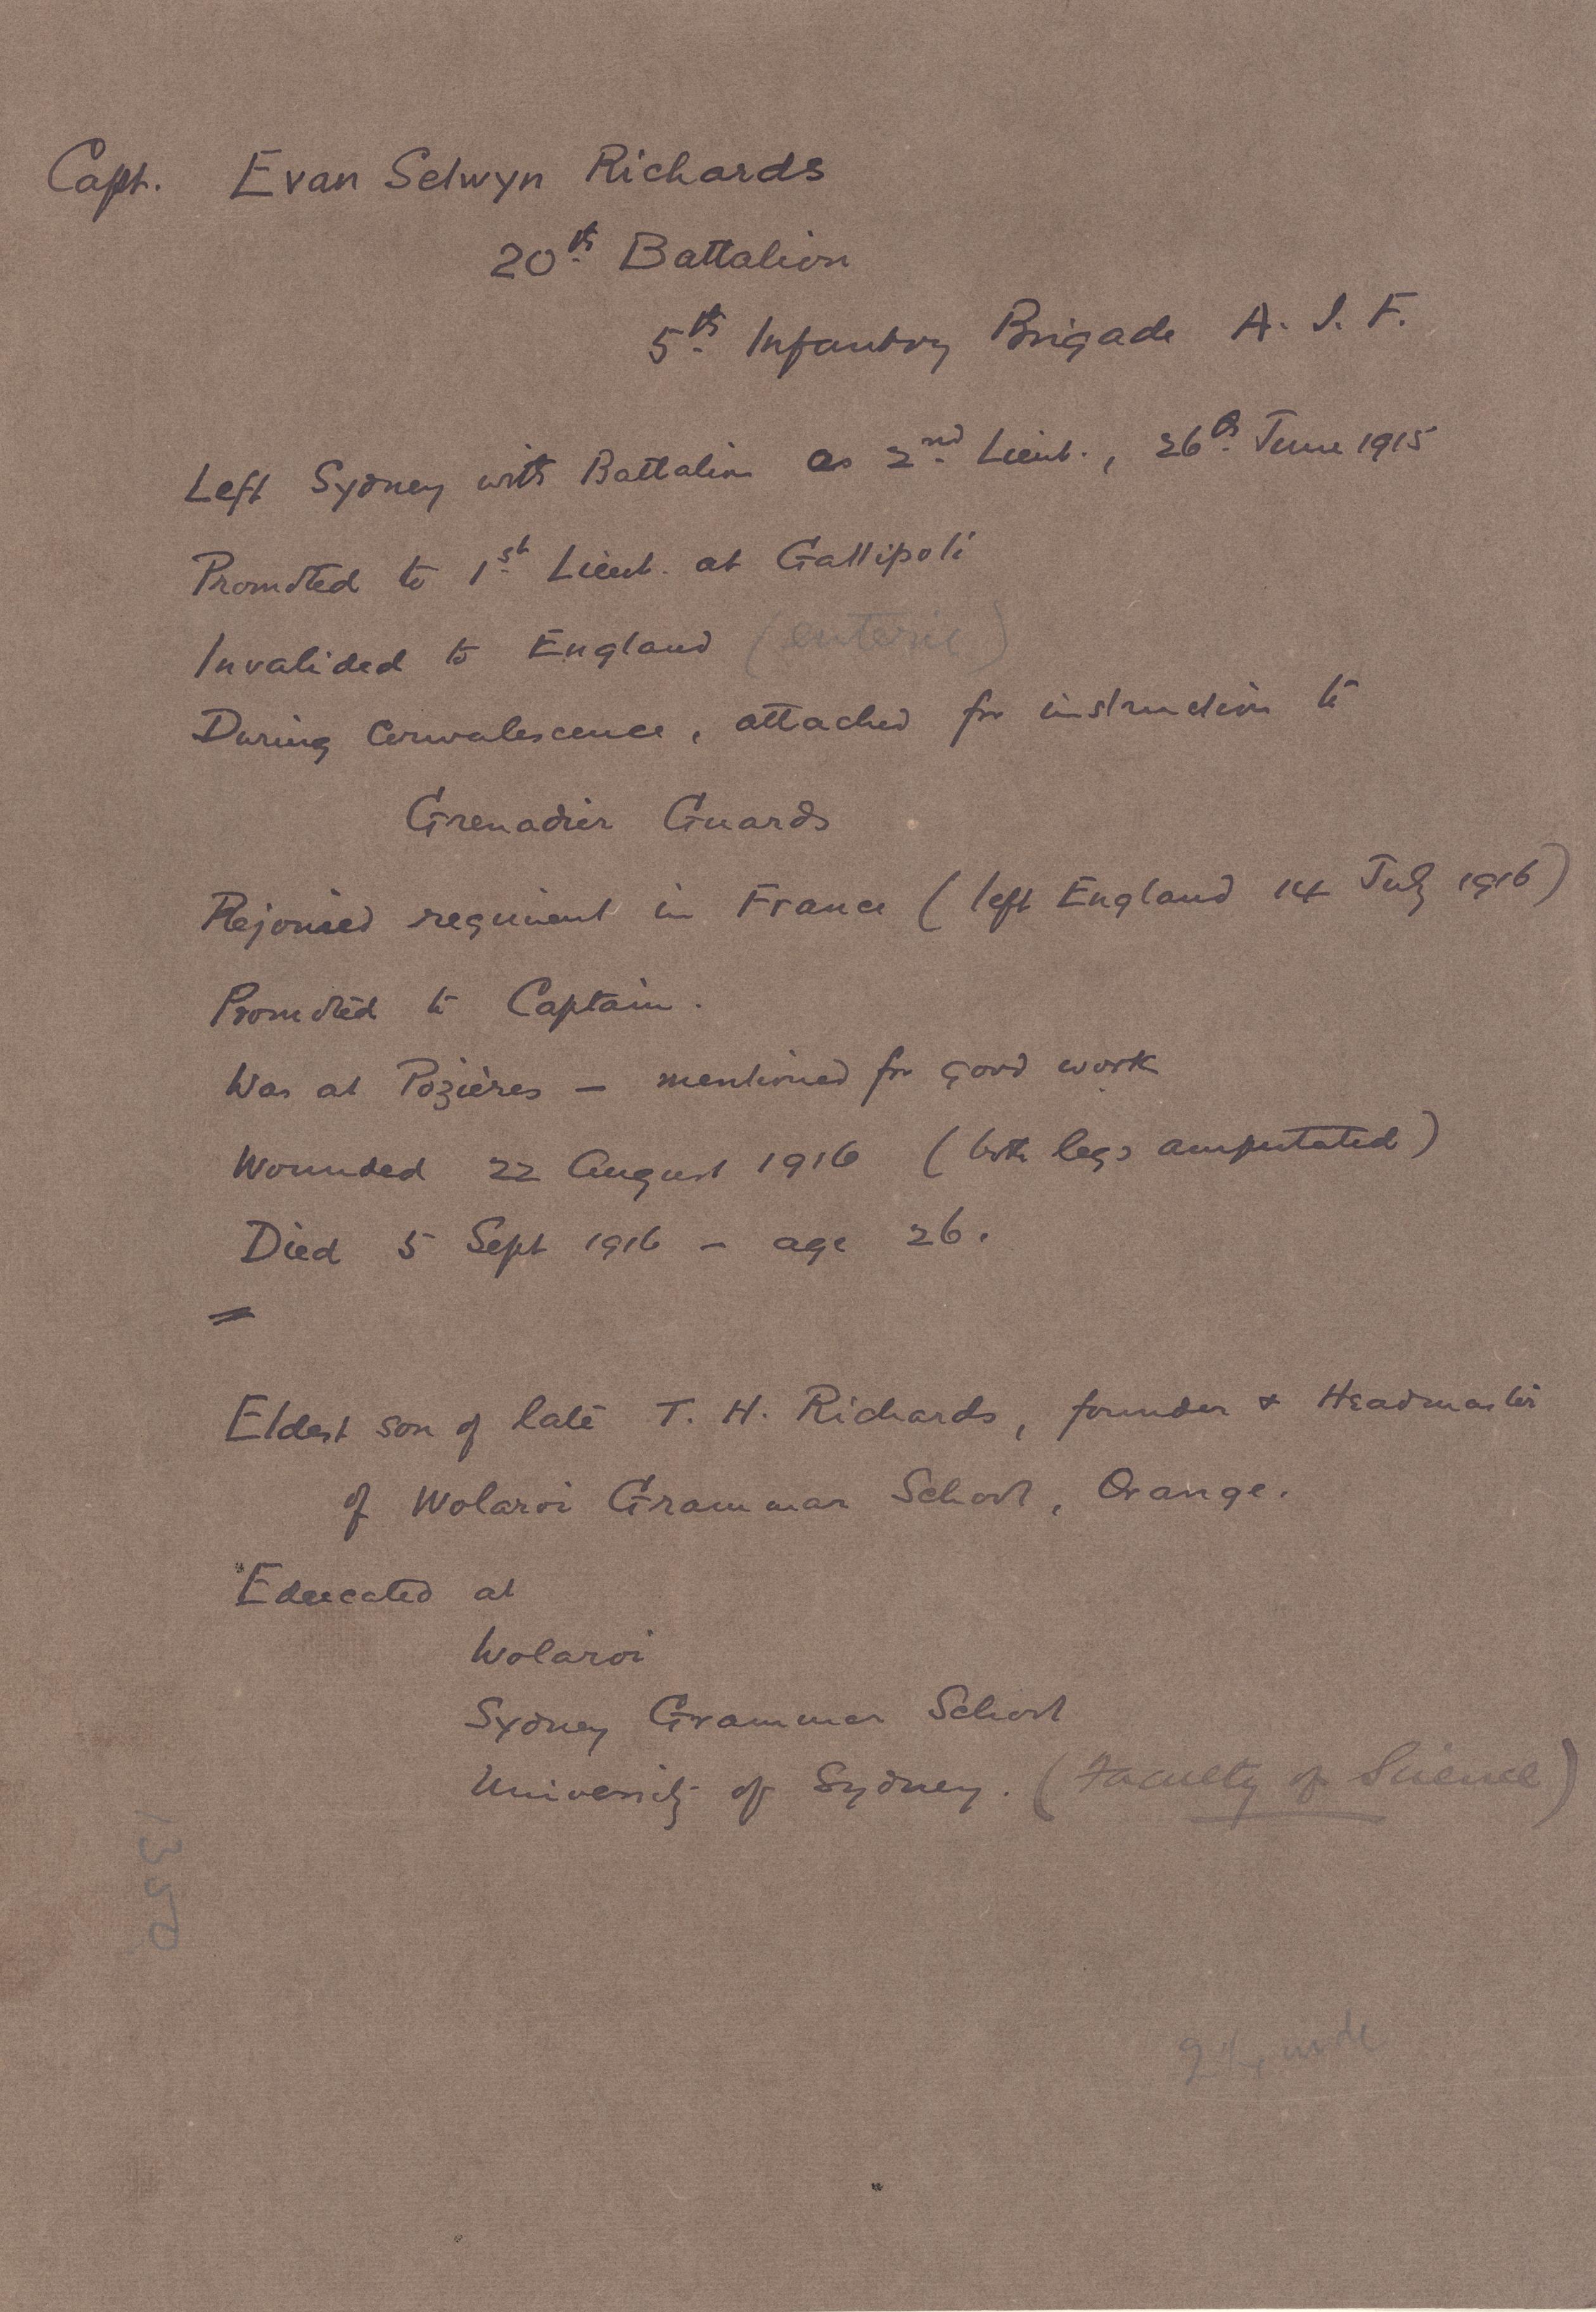 Capt. Evan Selwyn Richards
20th Battalion
5th Infantry Brigade A. I. F.
Left Sydney with Battalion as 2nd Lieut., 26th June 1915
Promoted to 1st Lieut. at Gallipoli
Invalided to England (enteric)
During convalescence, attached for instruction to
Grenadier Guards
Rejoined regiment in France (left England 14 July 1916)
Promoted to Captain.
Was at Pozières – mentioned for good work
Wounded 22 August 1916 (both legs amputated)
Died 5 Sept 1916 – age 26.
Eldest son of late T. H. Richards, founder & Headmaster
of Wolaroi Grammar School, Orange.
Educated at
Wolaroi
Sydney Grammar School
University of Sydney. (Faculty of Science)
1350